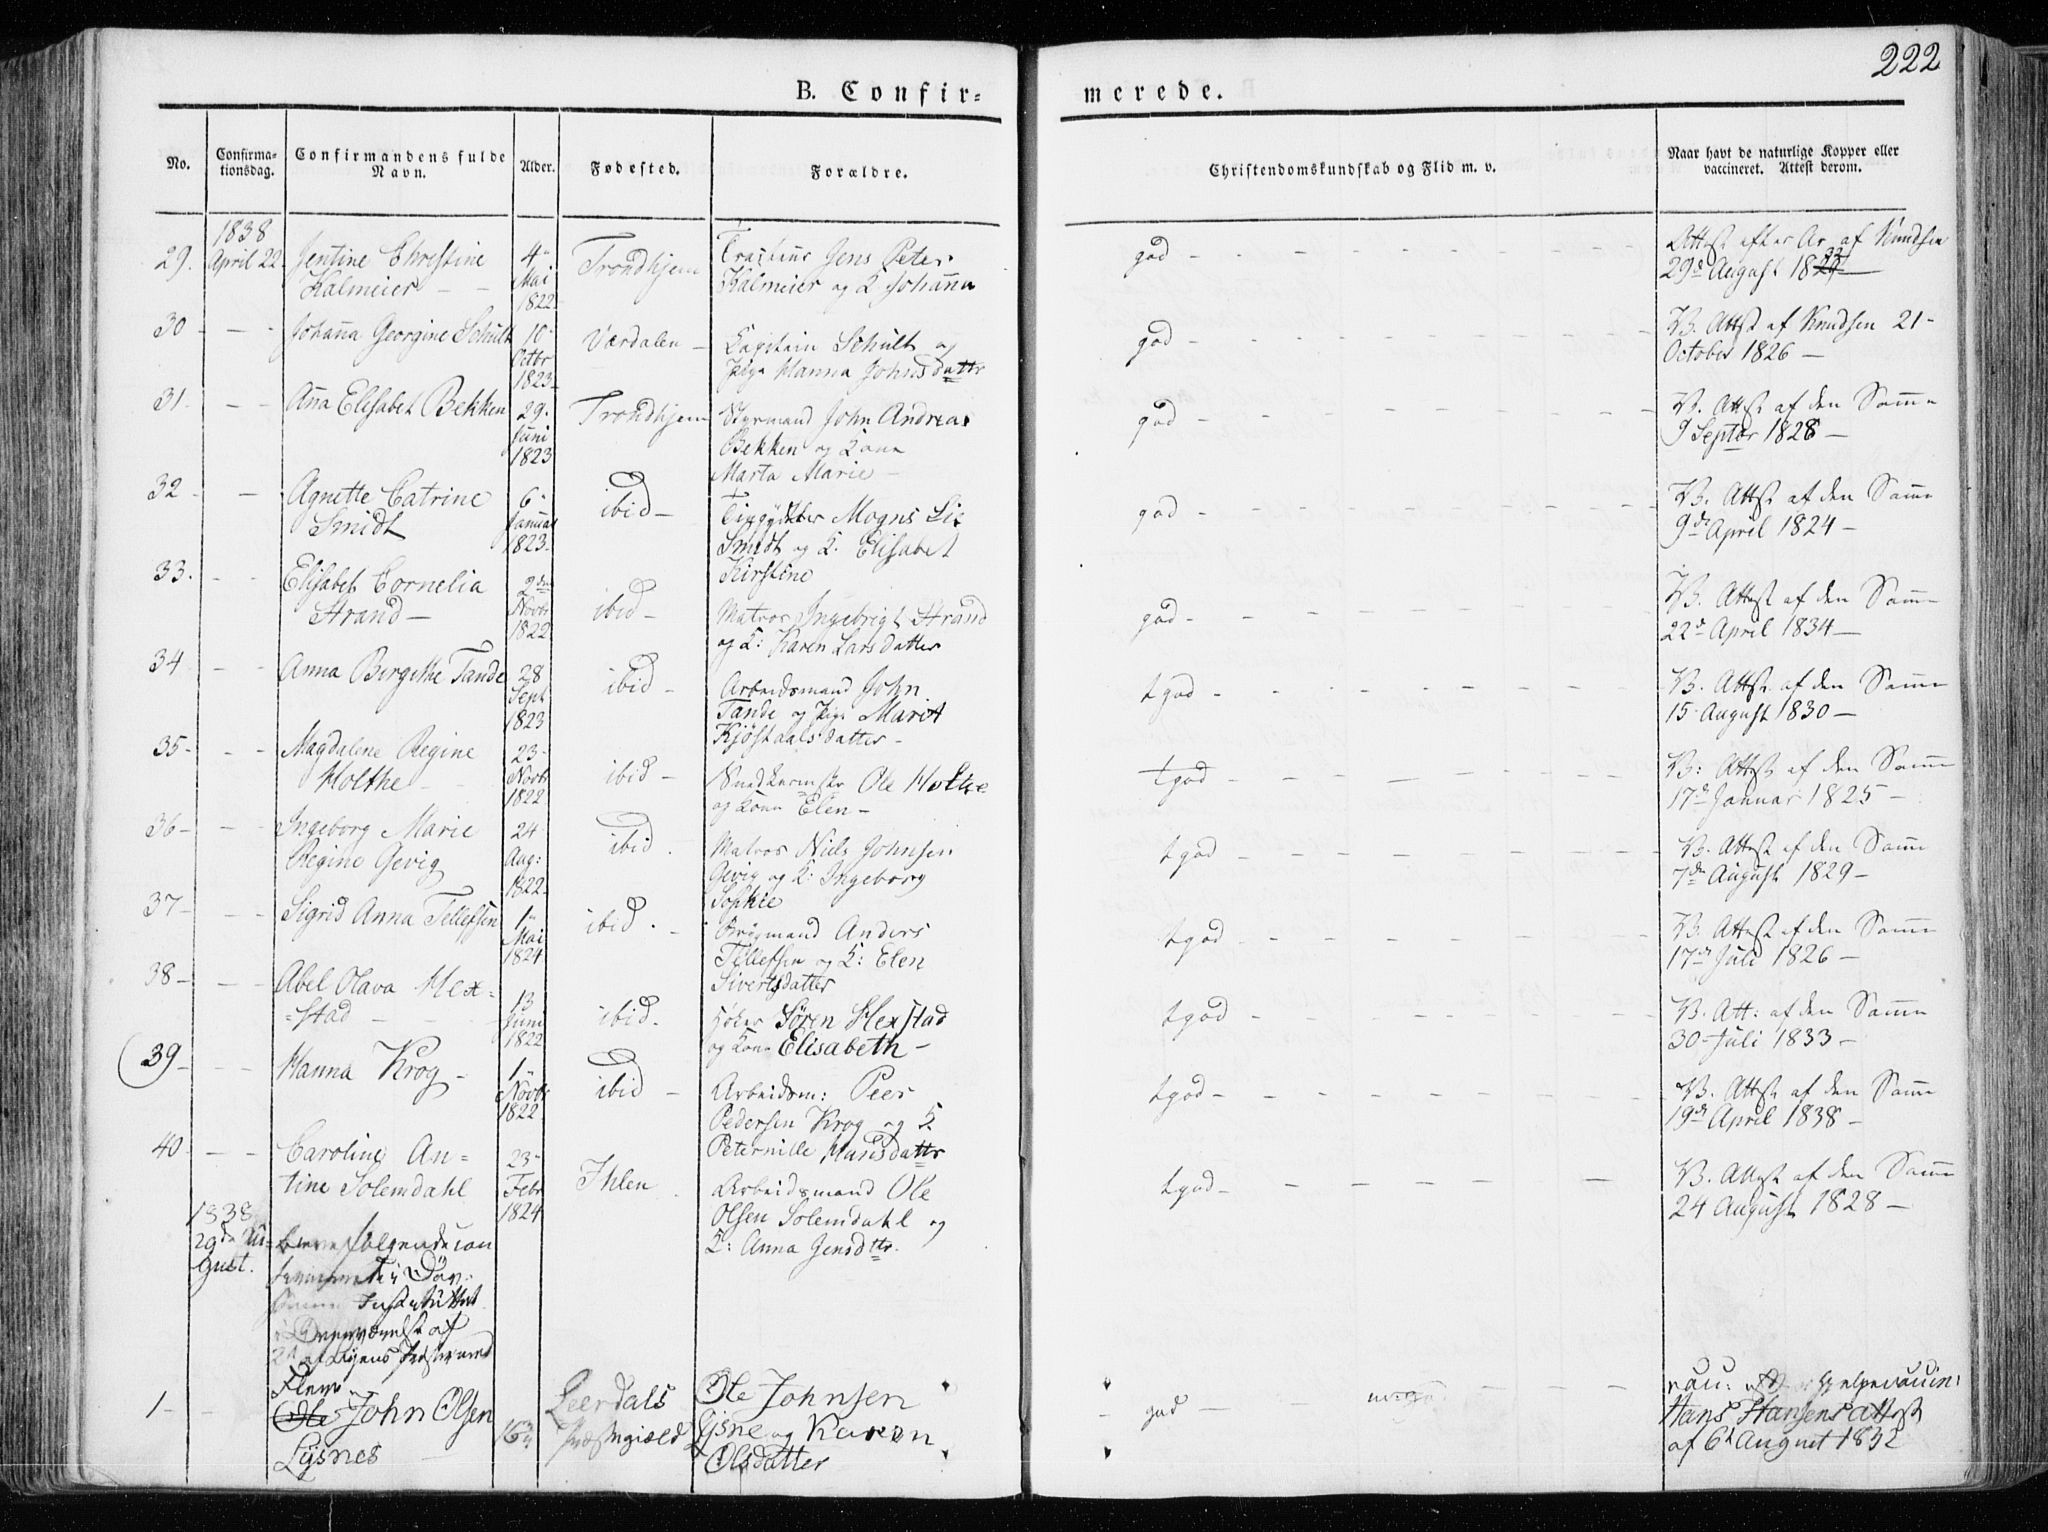 222
B. Confir-
merede.
No.
Confirma-
tionsdag.
Confirmandens fulde
Navn.
Alder.
Fødested.
Forældre.
Christendomskundskab og Flid m. v.
Naar havt de naturlige Kopper eller
vaccineret. Attest derom.
1838
29. April 22.
Jentine Christine
Kalmeier
4
Mai
1822
Trondhjem
Jens Peter
Kalmeier og K. Johanna
god
Attest af Knudsen
29 August 18
30
Johanna Georgine Schult
10
Octbr
1823
Værdalen
Capitain Schult og
Pige Hanna Johnsdattr
god
V. Attst af Knudsen 21
October 1826
31
Ana Elisabet Bekken
29
Juni
1823
Trondhjem
Styrmand John Andreas
Bekken og Kone
Marta Marie
god
V. Attst af den Samme
9 Septbr 1828
32
Agnette Catrine
Smidt
6
Januar
1823
ibid
Mogns Lie
Smidt og K. Elisabet
Kirstine
god
V. Attst af den Samme
9de April 1824
33.
Elisabet Cornelia
Strand
2den
Novbr
1822
ibid
Matros Ingebrigt Strand
og K: Karen Larsdatter
god
V. Attest af den Samme
22de April 1834
34
Anna Birgithe Tande
28
Sept
1823
ibid
Arbeidsmand John
Tande og Pige Marit
Kjöstaalsdatter
tgod
V. Attst af den Samme
15 August 1830
35
Magdalene Regine
Holthe
23
Novbr
1822
ibid
Snedkermstr Ole Holthe
og Kone Elen
tgod
V: Attst af den Samme
17de Januar 1825
36
Ingeborg Marie
Regine Gevig
24
Aug:
1822
ibid
Matros Niels Johnsen
Gevig og K: Ingeborg
Sophie
tgod
V. Attst af den Samme
7de August 1829
37
Sigrid Anna Tellefsen
1
Mai
1824
ibid
Anders
Tellefsen og K: Elen
Sivertsdatter
tgod
V. Attst af den Samme
17de Juli 1826
38
Abel Olava Hex-
=stad
13
Juni
1822
ibid
Høker Sören Hexstad
og Kone Elisabeth
tgod
V. Att: af den Samme
30 Juli 1833
39
Hanna Krog
1
Novbr
1822
ibid
Arbeidsm: Peer
Pedersen Krog og K.
Peternille Hansdattr
tgod
V. Attst af den Samme
19de April 1838
40
Caroline An-
tine Solemdahl
23
Febr
1824
Ihlen
Arbeidsmand Ole
Olsen Solemdahl og
K: Anna Jensdttr.
tgod
V. Attst af den Samme
24 August 1828
1838
29de Au-
gust.
følgende con
i Döv-
stumme Institutet
i Overværelse af
1
Ole John Olsen
Lysnes
16
Leerdals
Præstegield
Ole Johnsen
Lysne og Karen
Olsdatter
god
vac:
Hans Hansens Attest
af 6t August 1832